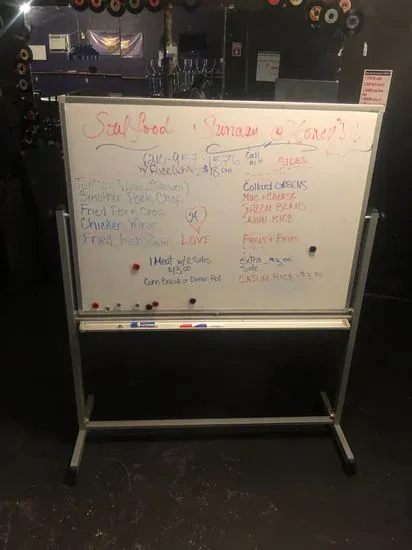 Soul Food Sunday @ Honey's
Call
w/ Rice $18.00
SIDES
Smother Pork Chop
Fried Pork Chop
Chicken Wings
Fried Fish
LOVE
Collard GREENS
Mac n Cheese
GREEN BEANS
CAJUN RICE
FRENCH FRIES
1 Meat w/ 2 Sides
$13.00
Corn Bread or Dinner Roll
extra $3.00
Side
CAJUN RICE $3.00